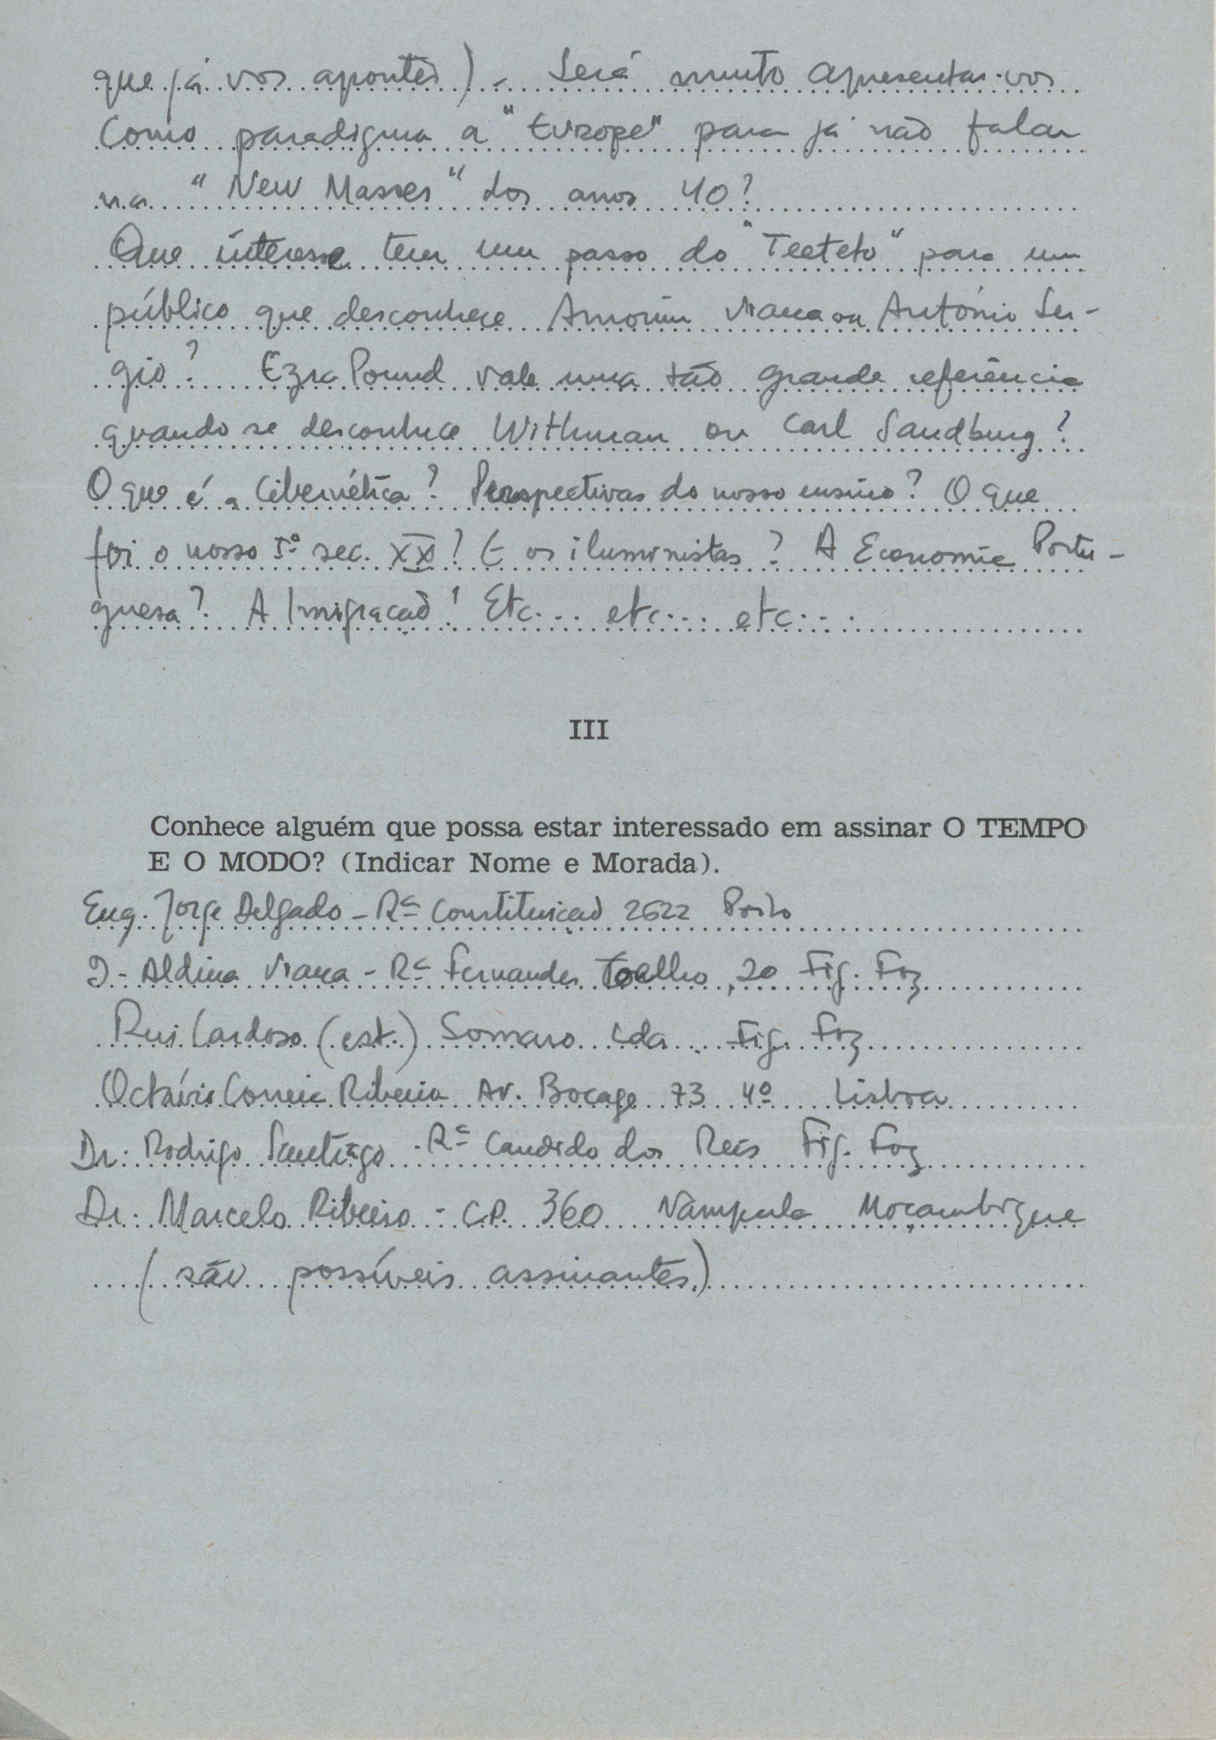 que já vos apontei). Será muito apresentar-vos
como paradigma a "Europe" para já não falar
na "New Masses" dos anos 40?
Que interesse tem um passo do "Teeteto" para um
público que desconhece Amorim Viana ou António Ser-
gio? Ezra Pound vale uma tão grande referência
quando se desconhece Withman ou Carl Sandburg?
O que é a Cibernética? Perspectivas do nosso ensino? O que
foi o nosso 1º sec. XX? E os iluministas? A Economia Portu-
guesa? A Imigração! Etc... etc... etc...
III
Conhece alguém que possa estar interessado em assinar O TEMPO
E O MODO? (Indicar Nome e Morada).
Eng. Jorge Delgado - Rª Constituição 2622 Porto
D. Aldina Viana - Rª Fernandes Coelho, 20 Fig. Foz
Rui Cardoso (est.) Somaro Lda. Fig. Foz
Octávio Correia Ribeiro Av. Bocage 73 4º Lisboa
Dr. Rodrigo Santiago - Rª Candido dos Reis Fig. Foz
Dr. Marcelo Ribeiro - C.P. 360 Nampula Moçambique
(são possíveis assinantes.)